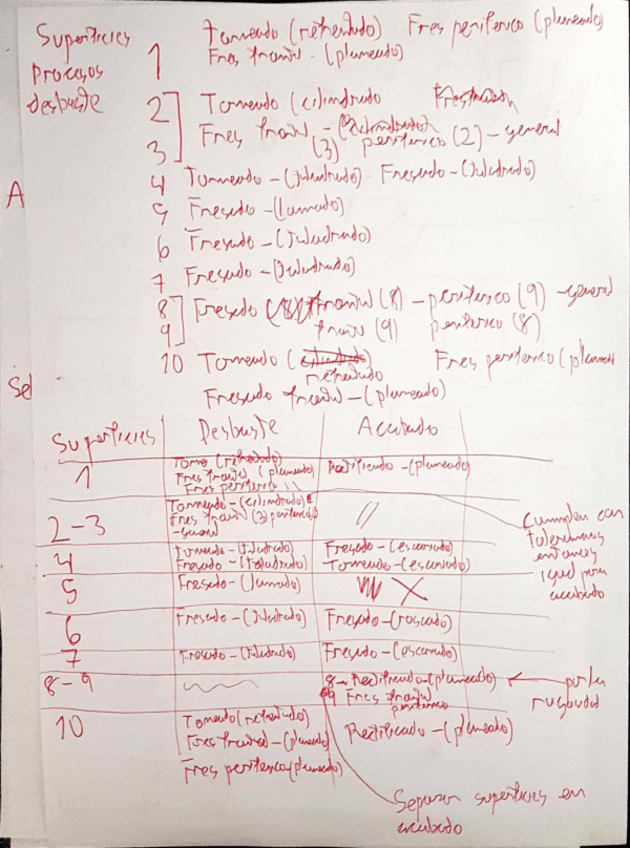 Superficies
procesos
desbaste
1 Torneado (refrentado) Fres periferico (planeado)
Fres frontal - (planeado)
2 Torneado (cilindrado
3 Fres frontal - (3) periferico (2) - general
4 Torneado - (Taladrado) Fresado - (Taladrado)
A
5 Fresado - (
6 Fresado - (Taladrado)
7 Fresado - (Taladrado)
8 Fresado frontal (8) - periferico (9) - general
9 front (9) periferico (8)
10 Torneado (refrentado Fres periferico (planeado
Sel
Fresado frontal - (planeado)
Superficies Desbaste Acabado
1 Torno (refrentado)
Fres frontal (planeado) Rectificado - (planeado)
Fres periferico \\
2-3 Torneado - (cilindrado)
Fres frontal (3) periferico
- general //
Cumplen con
tolerancias
entonces
igual para
acabado
4 Torneado - (Taladrado) Fresado - (escariado)
Fresado - (Taladrado) - Torneado - (escariado)
5 Fresado - ( X
6 Fresado - (Taladrado) Fresado - (roscado)
7 Fresado - (Taladrado) Fresado - (escariado)
8-9 8 - Rectificado - (planeado) por la
9 Fres frontal rugosidad
periferico
10 Torneado (refrentado)
Fres frontal - (planeado) Rectificado - (planeado)
Fres periferico (planeado)
Separar superficies en
acabado